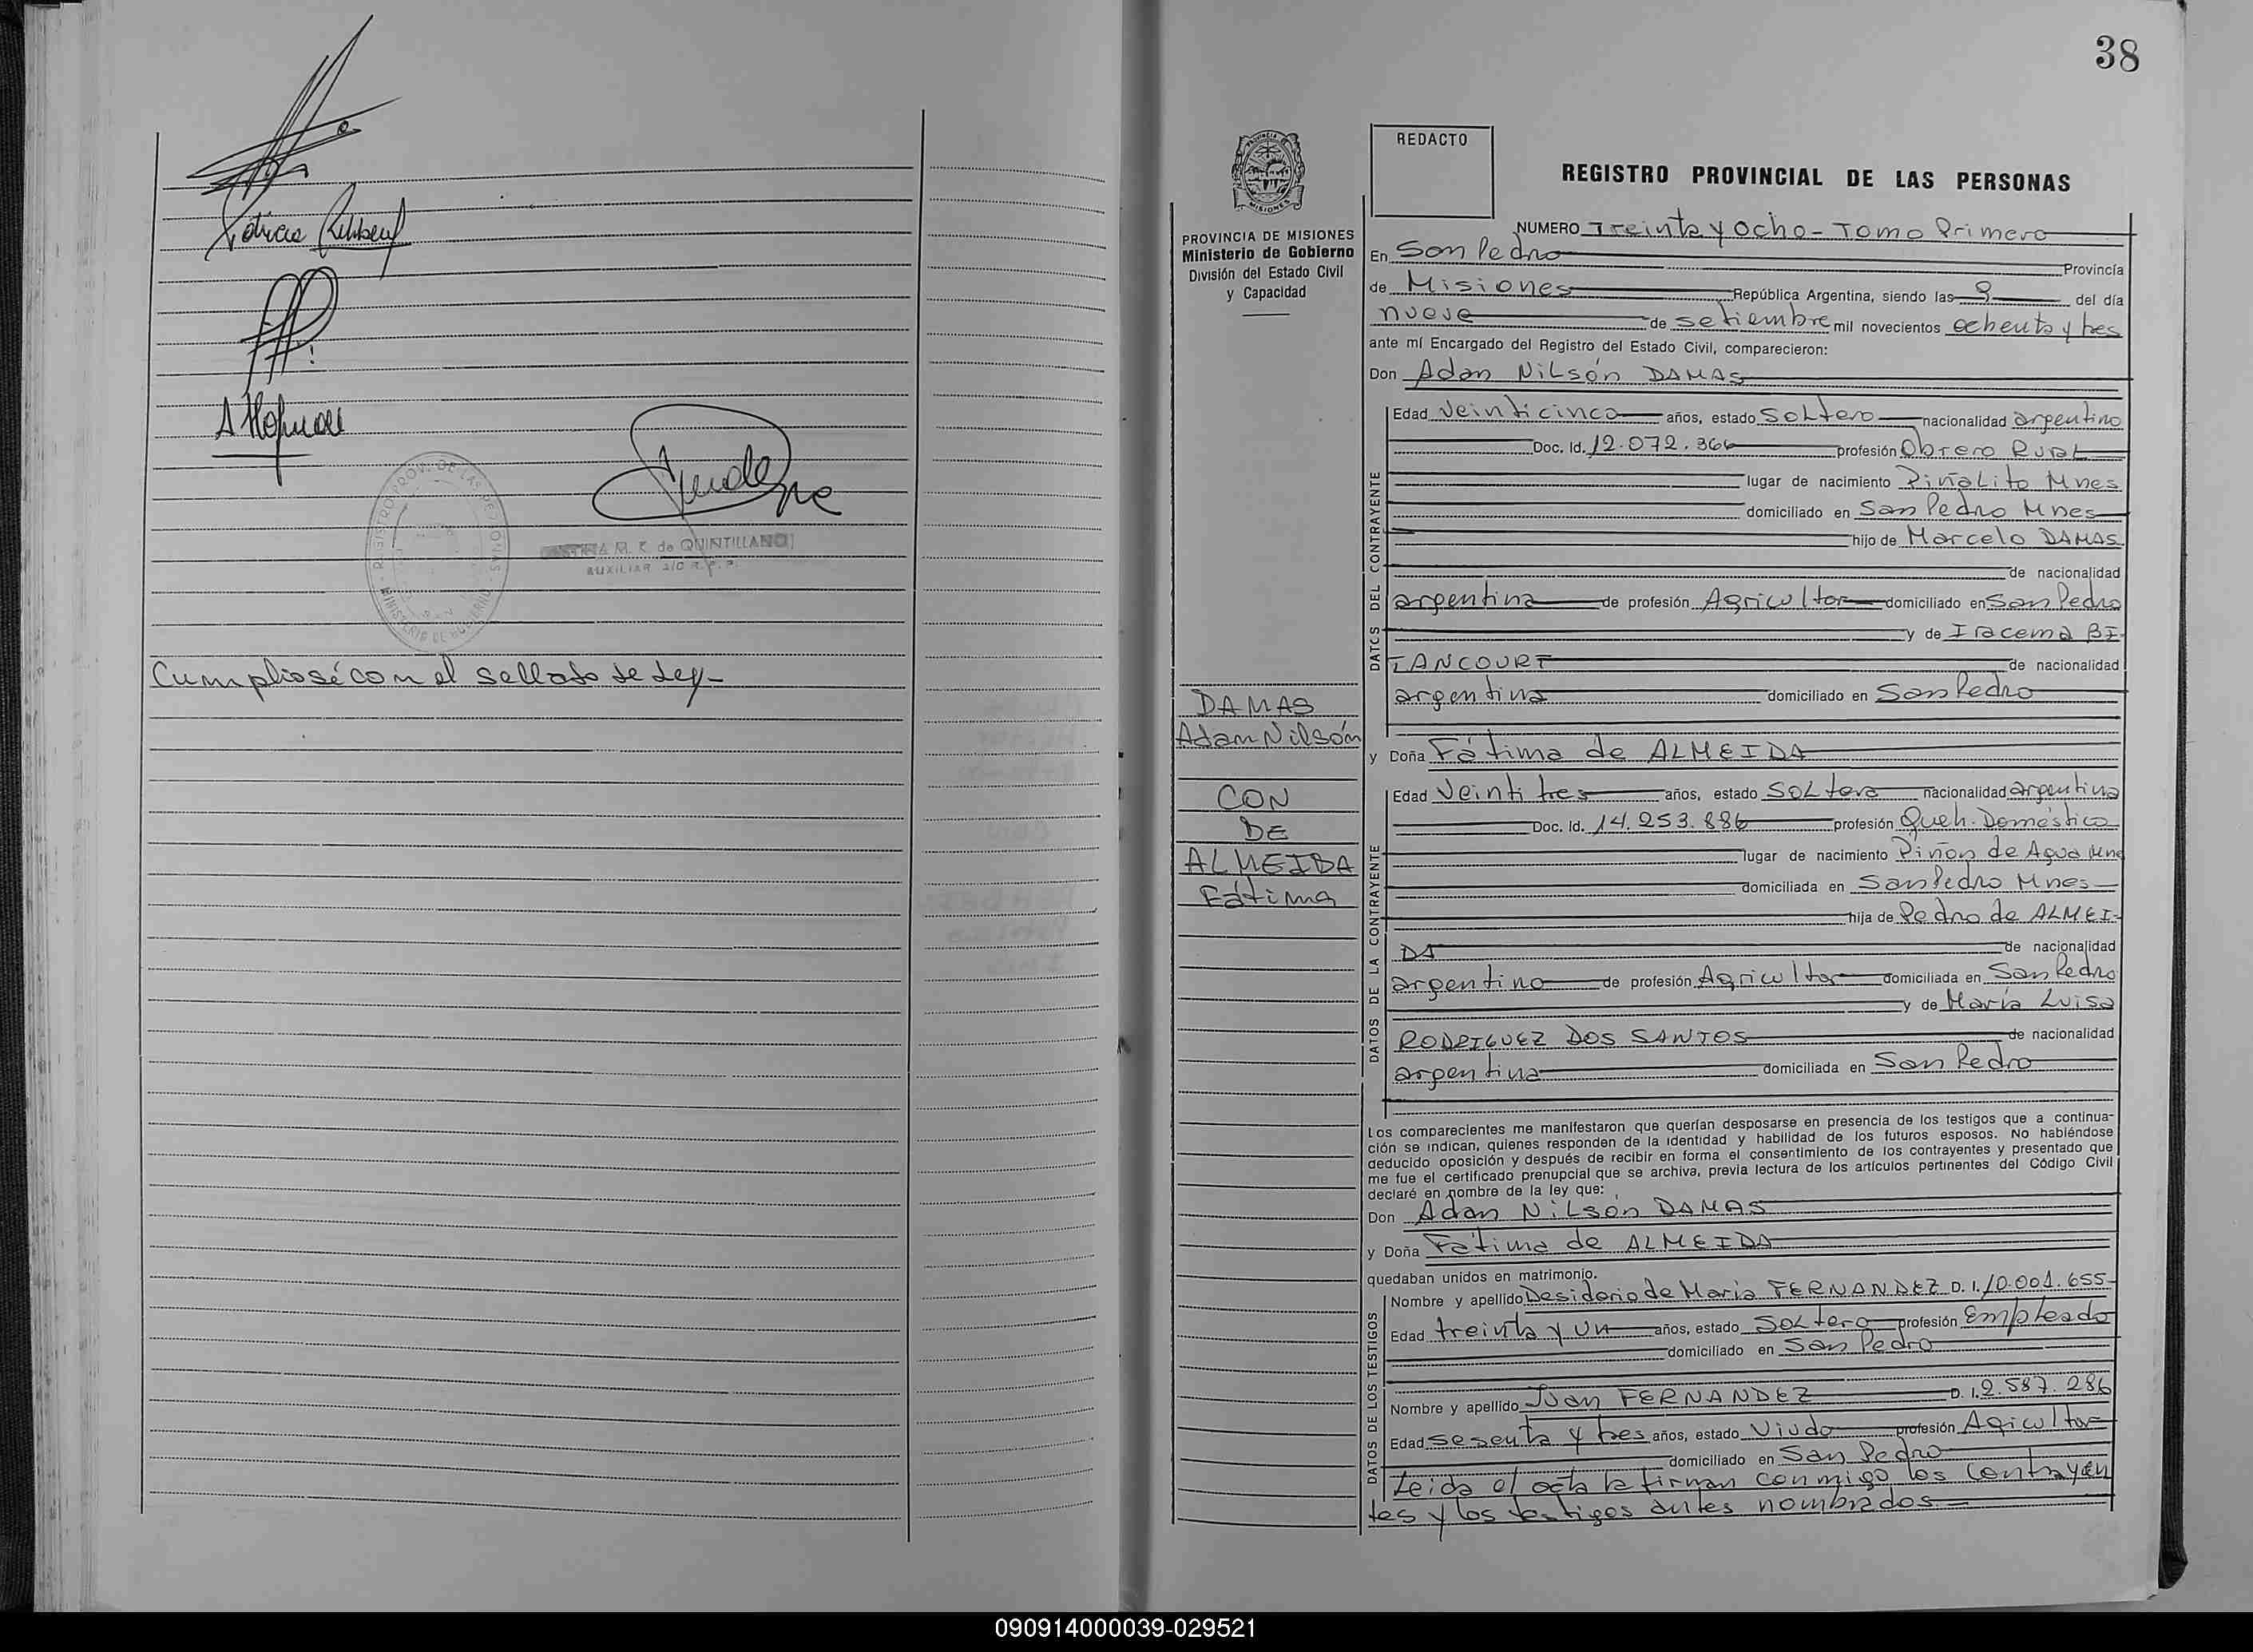 Patricia
A Hofman
REGISTRO PROV. DE LAS PERSONAS
M. R. de QUINTILLAN
AUXILIAR
Cumpliosé con el sellado de Ley-
38
REDACTO
REGISTRO PROVINCIAL DE LAS PERSONAS
PROVINCIA DE MISIONES
Ministerio de Gobierno
División del Estado Civil
y Capacidad
DAMAS
Adan Nilsón
CON
DE
ALMEIDA
Fátima
NUMERO Treinta y Ocho - Tomo Primero
En San Pedro Provincia
de Misiones República Argentina, siendo las 9 del día
nueve de setiembre mil novecientos ochenta y tres
ante mí Encargado del Registro del Estado Civil, comparecieron:
Don Adan Nilsón DAMAS
DATOS DEL CONTRAYENTE
Edad Veinticinco años, estado Soltero nacionalidad argentino
Doc. Id. 12.072.366 profesión Obrero Rural
lugar de nacimiento Piñalito Mnes
domiciliado en San Pedro Mnes
hijo de Marcelo DAMAS
de nacionalidad
argentina de profesión Agricultor domiciliado en San Pedro
y de Iracema BI-
TANCOURT de nacionalidad
argentina domiciliado en San Pedro
y Doña Fátima de ALMEIDA
DATOS DE LA CONTRAYENTE
Edad Veintitres años, estado Soltera nacionalidad argentina
Doc. Id. 14.253.886 profesión Queh. Doméstico
lugar de nacimiento Piñon de Agua Mne
domiciliada en San Pedro Mnes
hija de Pedro de ALMEI-
DA de nacionalidad
argentino de profesión Agricultor domiciliada en San Pedro
y de María Luisa
RODRIGUEZ DOS SANTOS de nacionalidad
argentina domiciliada en San Pedro
Los comparecientes me manifestaron que querían desposarse en presencia de los testigos que a continua-
ción se indican, quienes responden de la identidad y habilidad de los futuros esposos. No habiéndose
deducido oposición y después de recibir en forma el consentimiento de los contrayentes y presentado que
me fue el certificado prenupcial que se archiva, previa lectura de los artículos pertinentes del Código Civil
declaré en nombre de la ley que:
Don Adan Nilsón DAMAS
y Doña Fátima de ALMEIDA
quedaban unidos en matrimonio.
DATOS DE LOS TESTIGOS
Nombre y apellido Desiderio de María FERNANDEZ D. I. 10.001.655
Edad treinta y un años, estado Soltero profesión Empleado
domiciliado en San Pedro
Nombre y apellido Juan FERNANDEZ D. I. 2.587.286
Edad sesenta y tres años, estado Viudo profesión Agicultor
domiciliado en San Pedro
Leida el acta la firman conmigo los contrayen
tes y los testigos antes nombrados
090914000039-029521